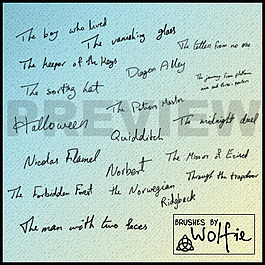 The boy who lived
The vanishing glass
The letters from no one
The keeper of the keys
Diagon Alley
The journey from platform
nine and three-quarters
The sorting hat
The Potions Master
PREVIEW
Halloween
Quidditch
The midnight duel
Nicolas Flamel
Norbert
The Mirror of Erised
The Forbidden Forest
the Norwegian
Ridgeback
Through the trapdoor
The man with two faces
BRUSHES BY
Wolfie